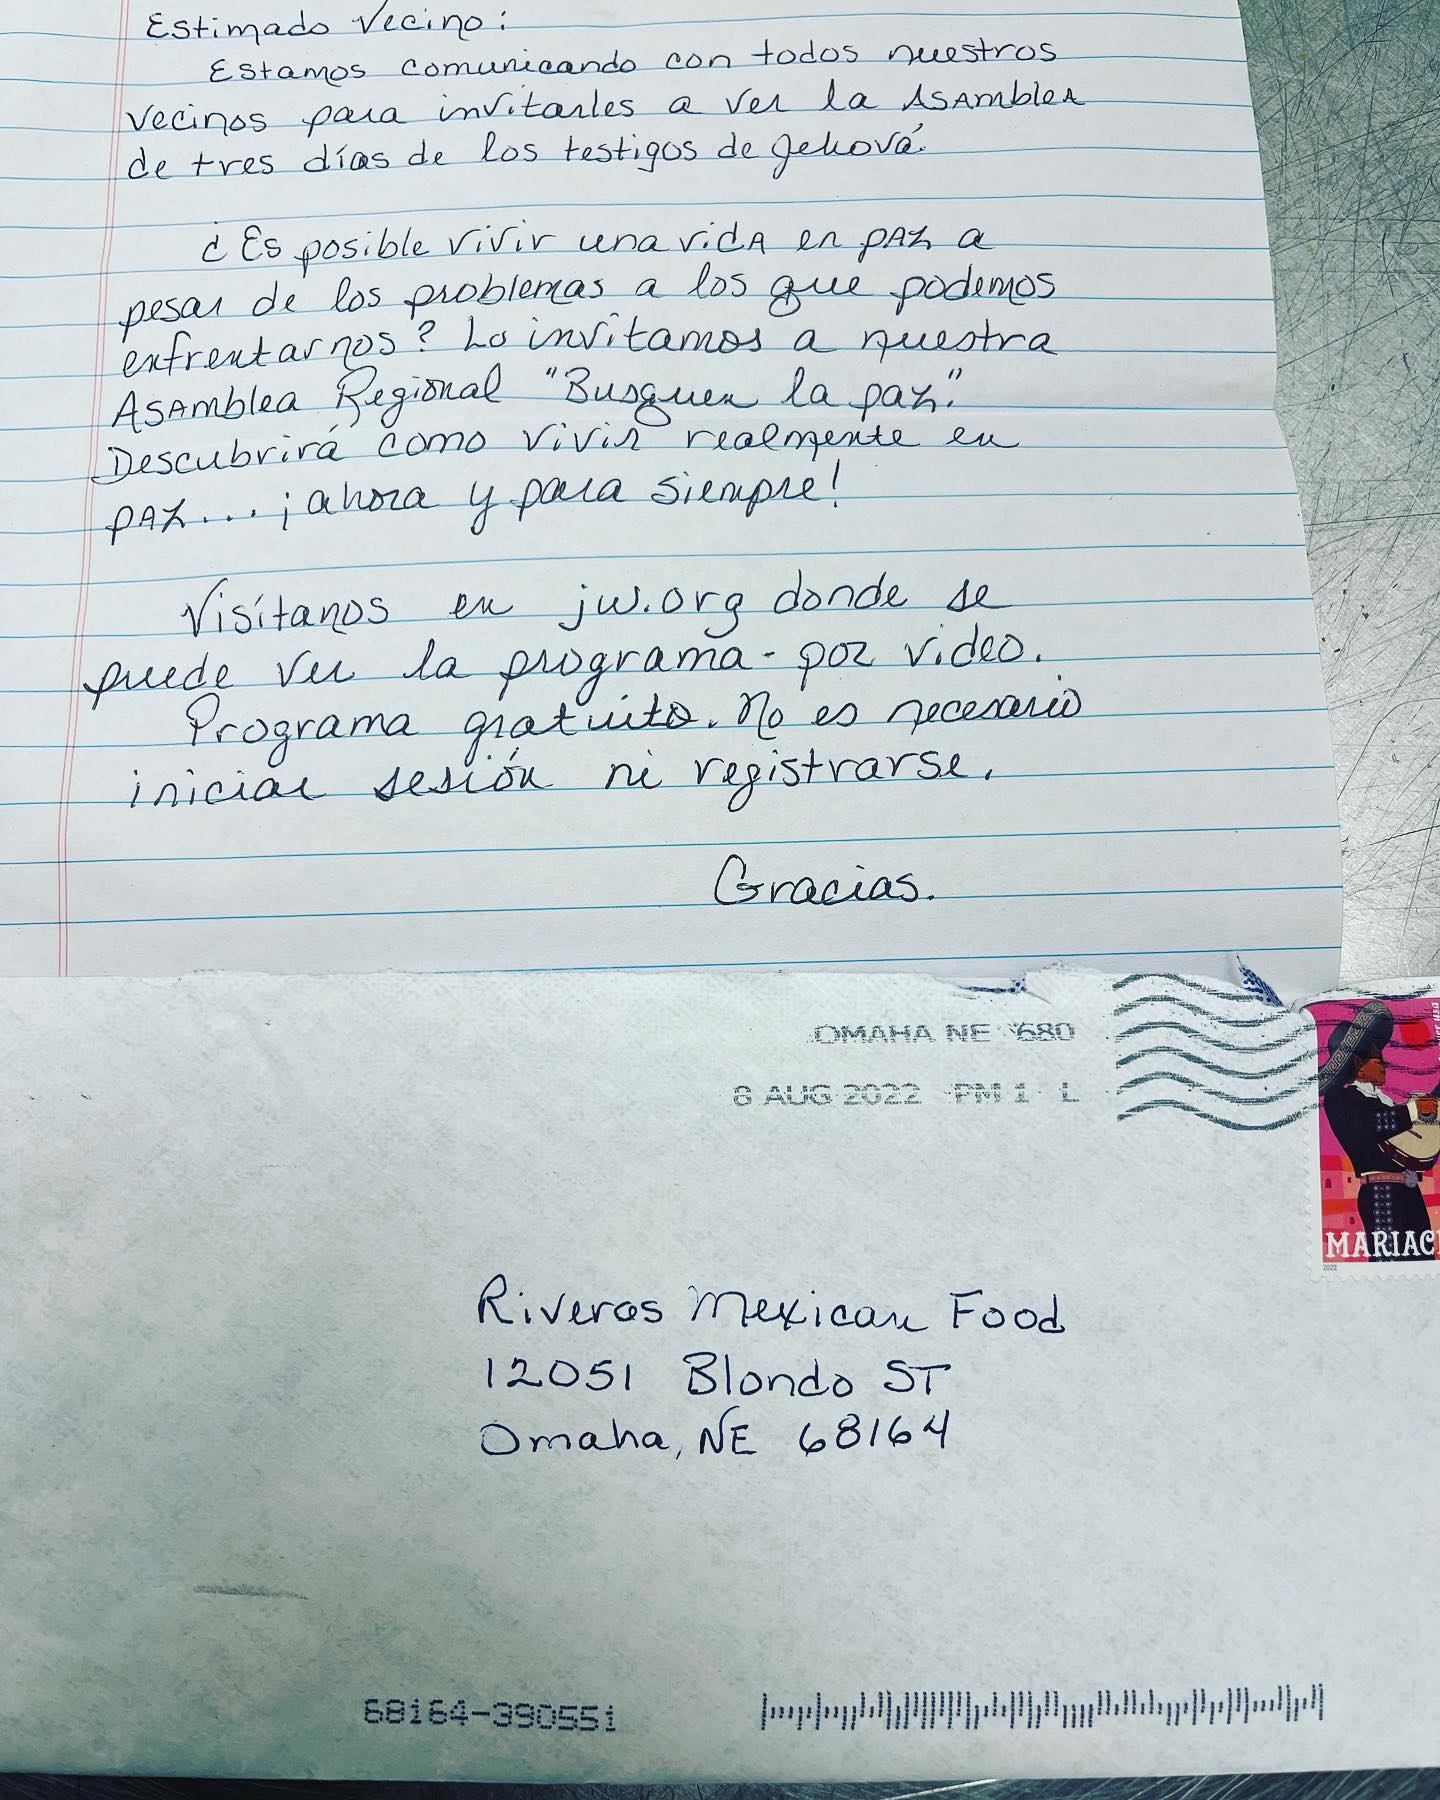 Estimado Vecino:
Estamos comunicando con todos nuestros
vecinos para invitarles a ver la Asamblea
de tres días de los testigos de Jehová.
¿Es posible vivir una vida en paz a
pesar de los problemas a los que podemos
enfrentarnos? Lo invitamos a nuestra
Asamblea Regional "Busquen la paz."
Descubrirá como vivir realmente en
paz... ¡ahora y para siempre!
Visítanos en jw.org donde se
puede ver la programa - por video.
Programa gratuito. No es necesario
iniciar sesión ni registrarse.
Gracias.
OMAHA NE 680
8 AUG 2022 PM 1 L
MARIAC
2022
Riveras Mexican Food
12051 Blondo ST
Omaha, NE 68164
68164-390551